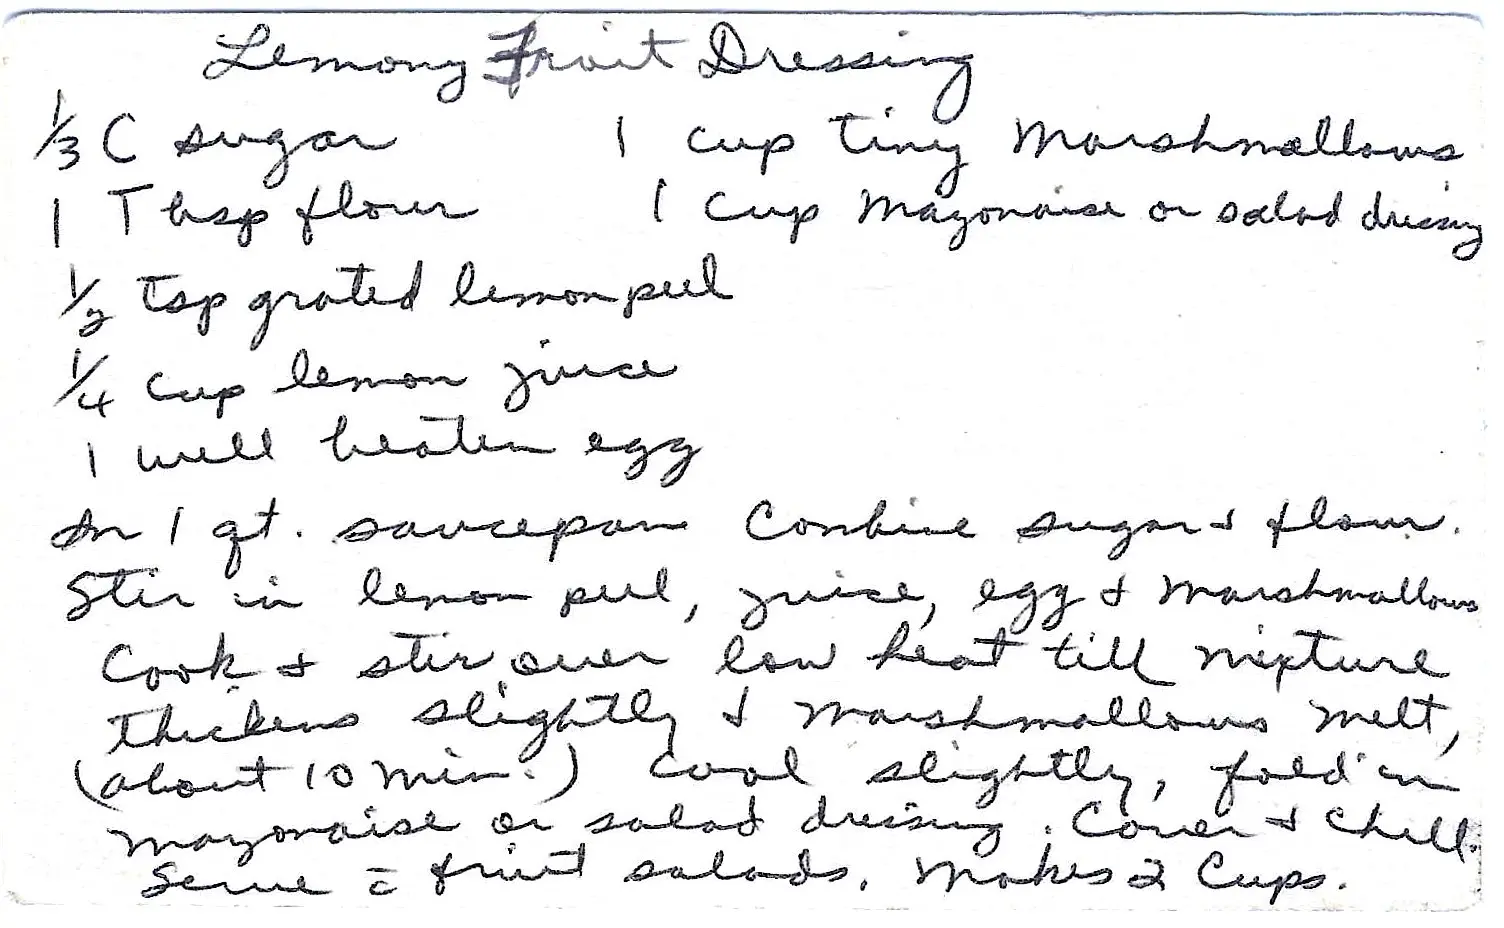 Lemony Fruit Dressing
1/3 C sugar 1 cup tiny Marshmallows
1 Tbsp flour 1 cup Mayonaise or salad dressing
1/2 tsp grated lemon peel
1/4 cup lemon juice
1 well beaten egg
In 1 qt. saucepan Combine sugar & flour.
Stir in lemon peel, juice, egg & Marshmallows
Cook & stir over low heat till mixture
thickens slightly & marshmallows melt,
(about 10 min.) Cool slightly, fold in
mayonaise or salad dressing. Cover & Chill.
Serve c̄ fruit salads. Makes 2 Cups.